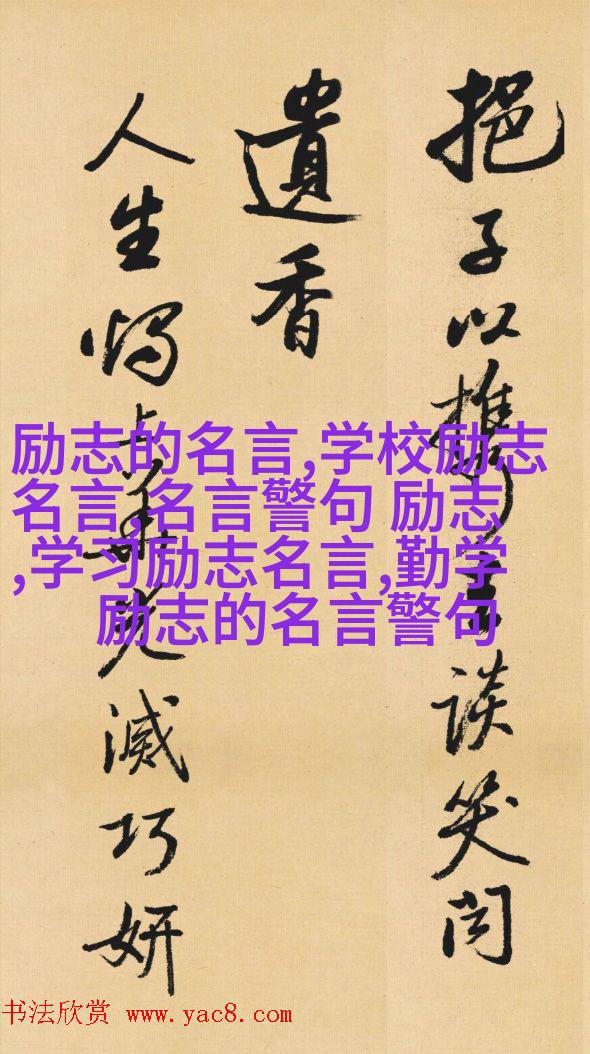 挹子以談笑
遺香
人生燭上華光滅巧妍
励志的名言,学校励志
名言,名言警句 励志
,学习励志名言,勤学
励志的名言警句
书法欣赏 www.yac8.com